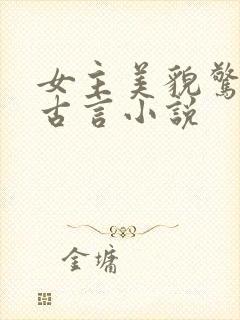 女主美貌驚
古言小説
金墉